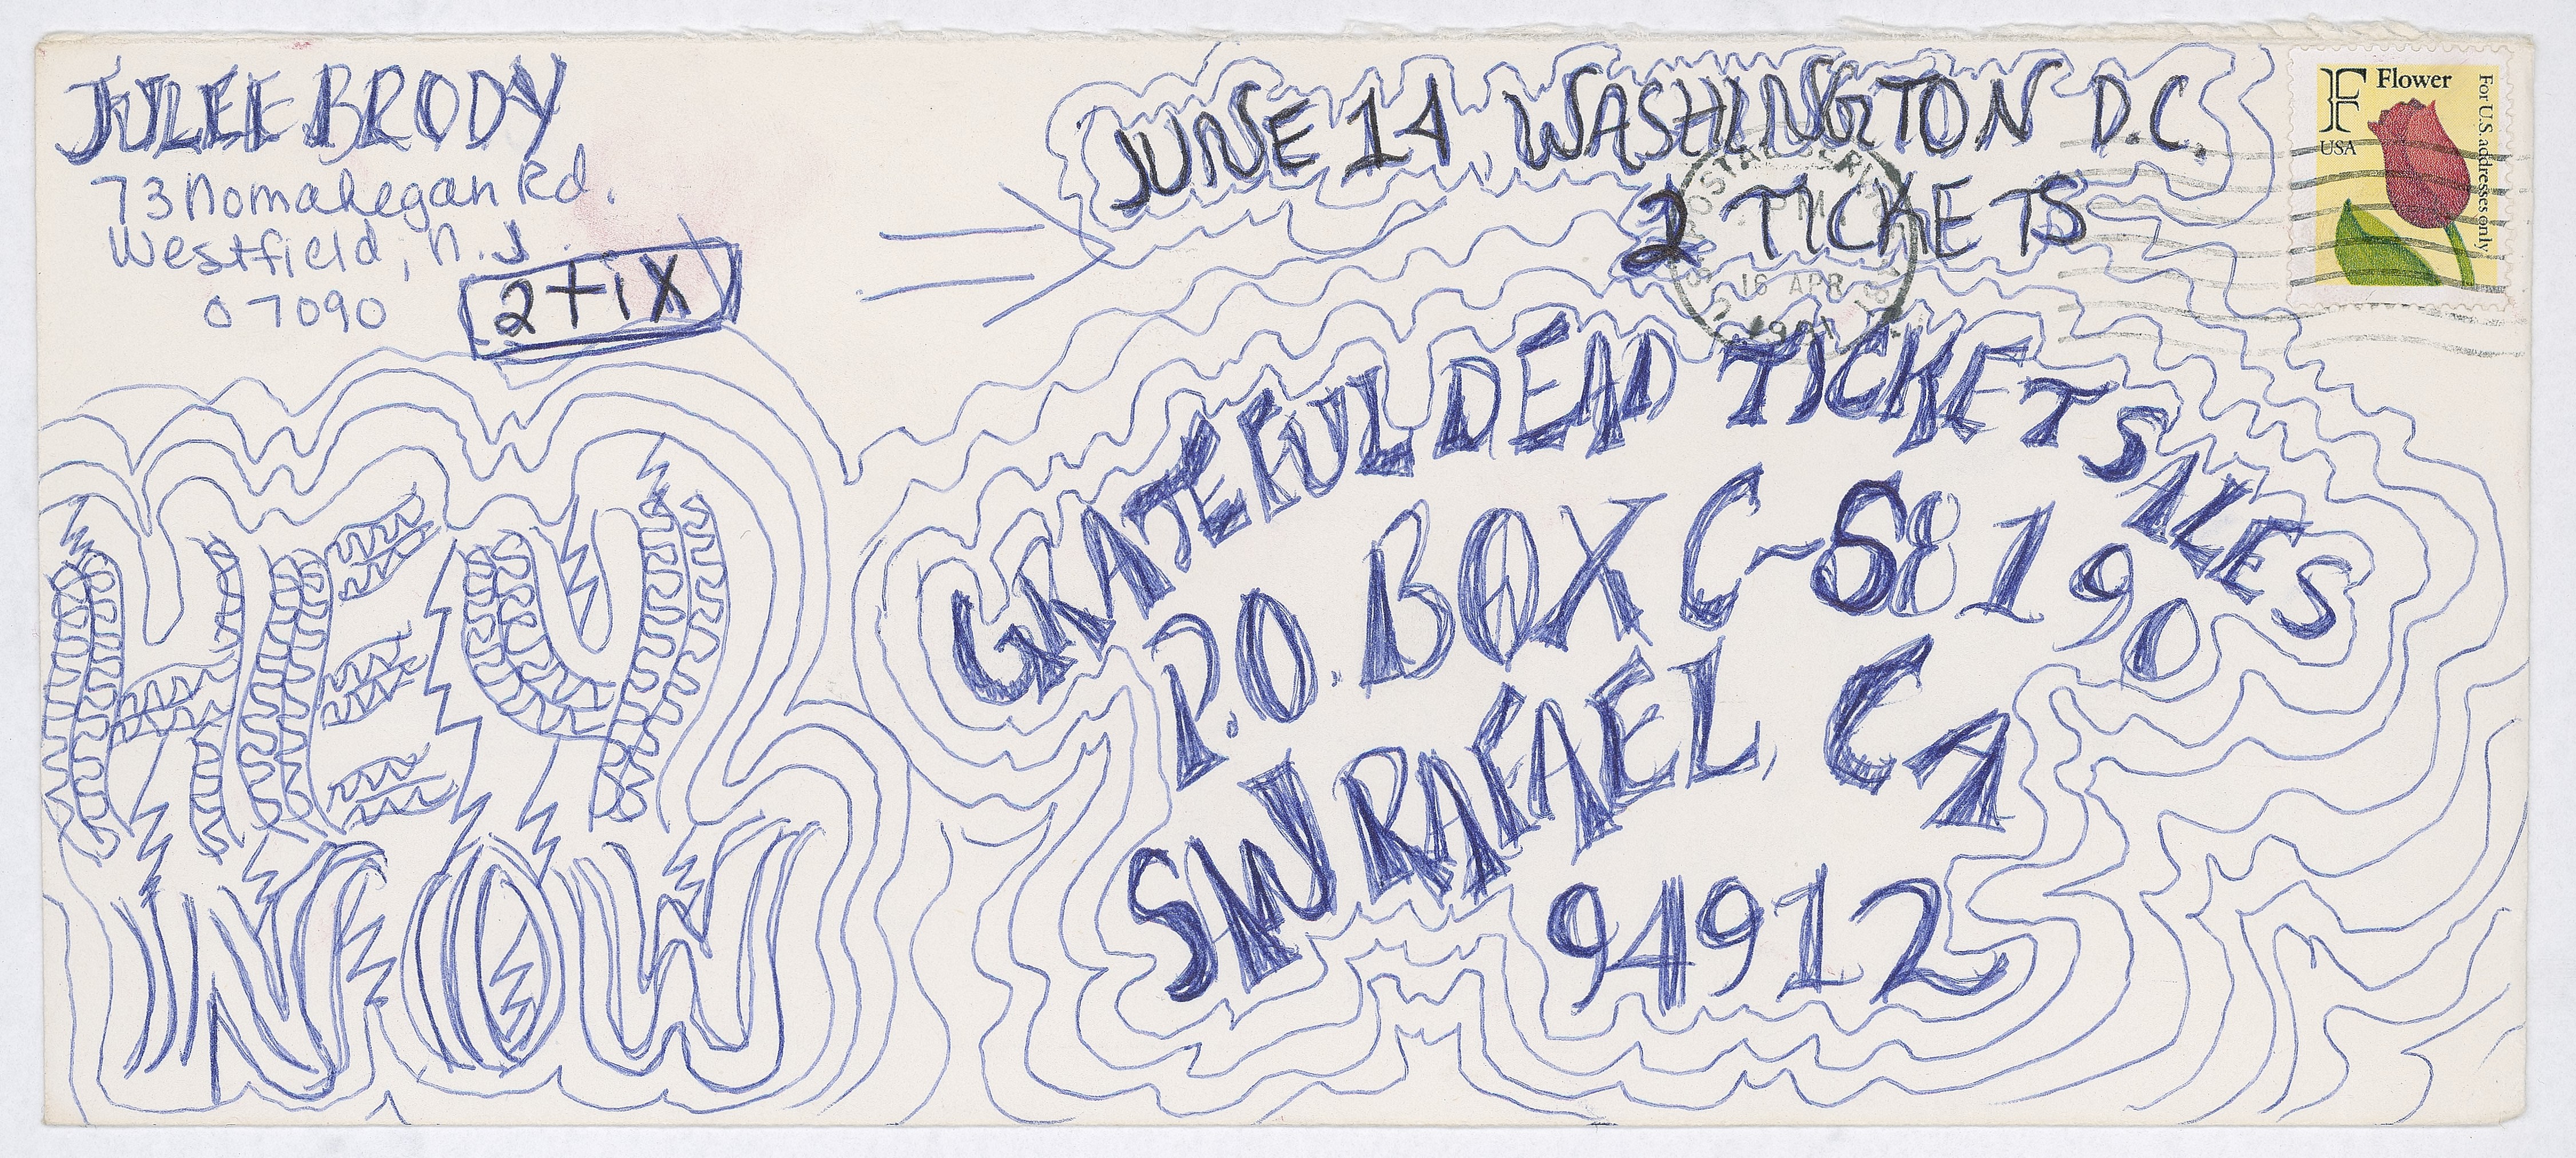 JULEE BRODY
73 Nomahegan Rd.
Westfield, N.J.
07090
2 tix
JUNE 14 WASHINGTON D.C.
2 TICKETS
F Flower
USA
For U.S. addresses only
POSTAL SERVICE
PM
16 APR
1991
GRATEFUL DEAD TICKET SALES
P.O. BOX C-S8190
SAN RAFAEL, CA
94912
HEY
NOW